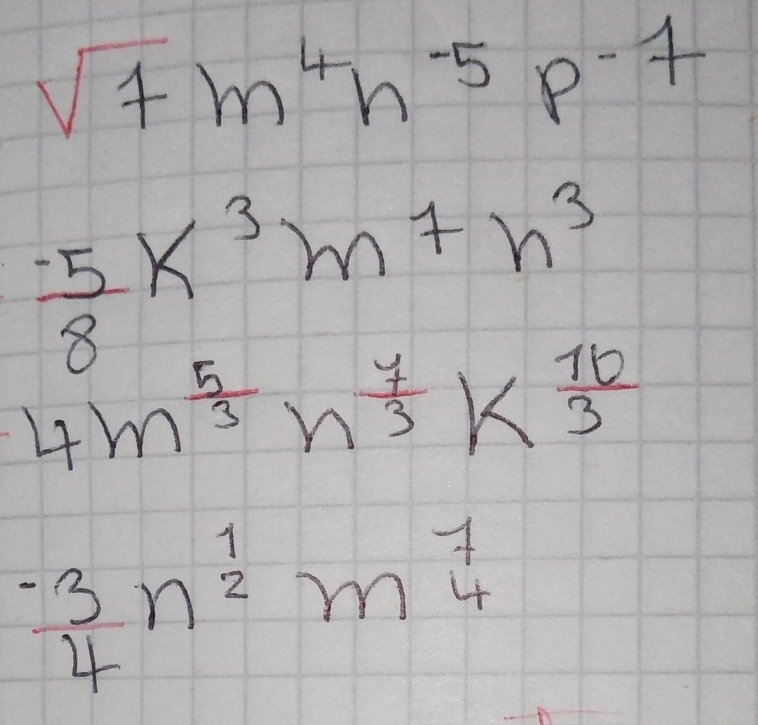 √7 m⁴ n⁻⁵ p⁻⁷
-5/8 K³ m⁷ n³
4 m^(5/3) n^(7/3) K^(10/3)
-3/4 n^(1/2) m^(7/4)